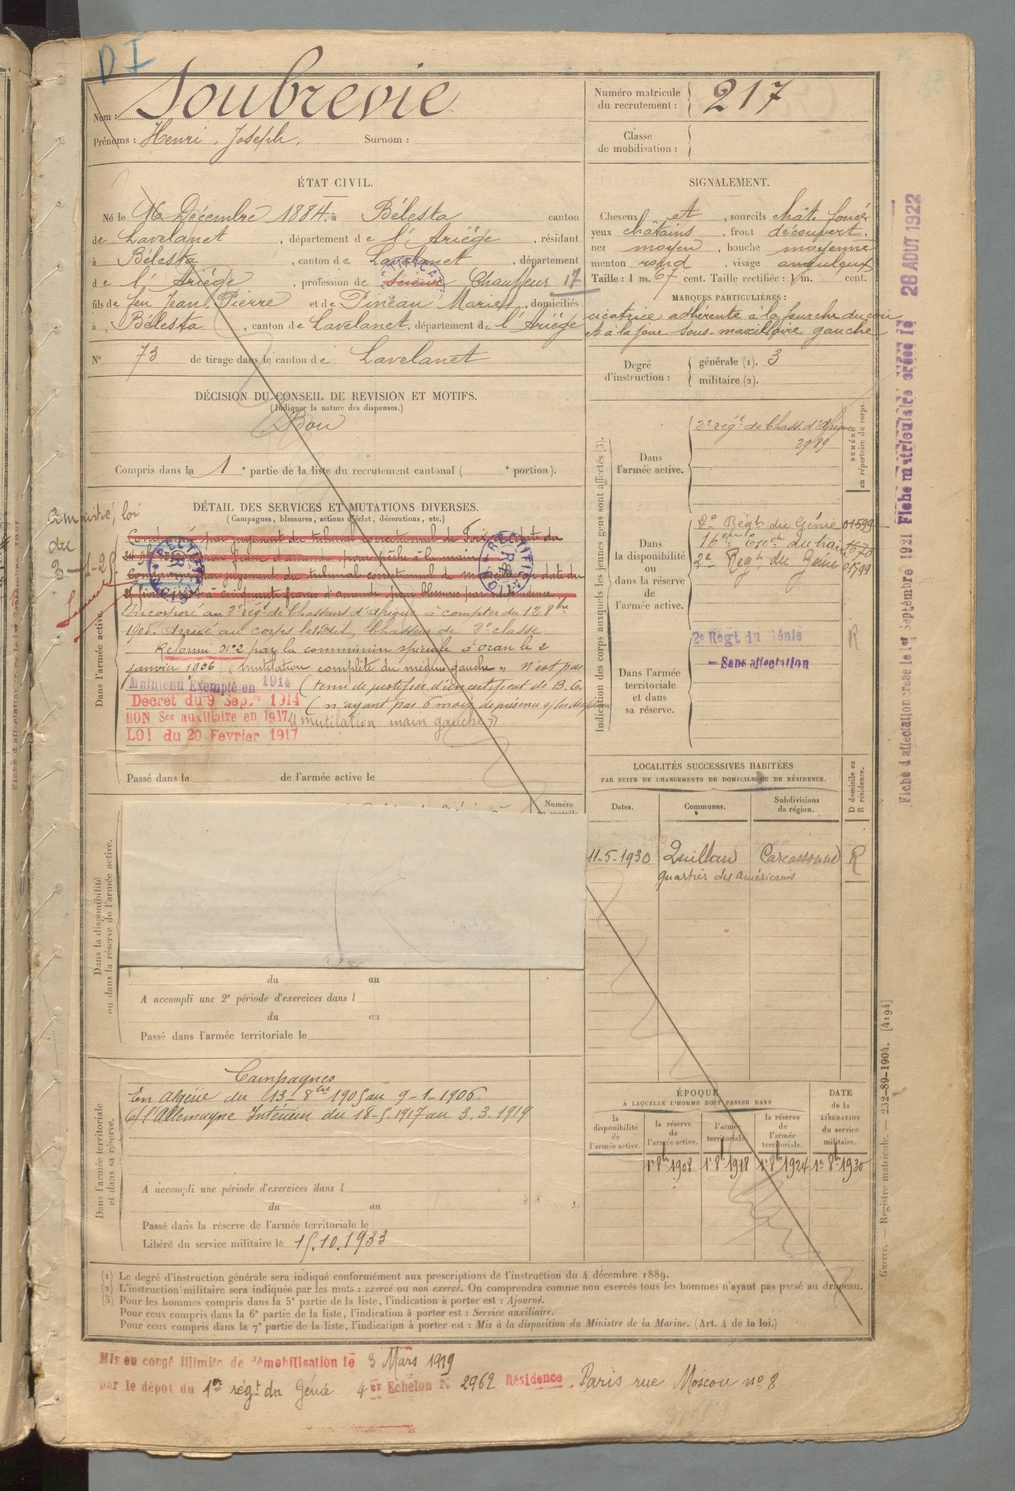 D I
Nom : Soubrevie
Prénoms : Henri, Joseph, Surnom :
Numéro matricule du recrutement : 217
Classe de mobilisation :
ÉTAT CIVIL.
Né le 16 Décembre 1884, à Bélesta canton
de Lavelanet, département de l'Ariège, résidant
à Bélesta, canton de Lavelanet département
de l'Ariège, profession de Chauffeur 17
fils de feu Jean Pierre et de Pineau Marie, domiciliés
à Bélesta, canton de Lavelanet, département de l'Ariège
N° 73 de tirage dans le canton de Lavelanet
SIGNALEMENT.
Cheveux et, sourcils chât. foncé
yeux châtains, front découvert,
nez moyen, bouche moyenne
menton rond, visage anguleux
Taille : 1 m. 67 cent. Taille rectifiée : 1 m. cent.
MARQUES PARTICULIÈRES :
cicatrice adhérente à la
et à la joue sous-maxillaire gauche
Degré d'instruction : générale (1). 3
militaire (2).
DÉCISION DU CONSEIL DE REVISION ET MOTIFS.
(Indiquer la nature des dispenses.)
Bon
Compris dans la 1e partie de la liste du recrutement cantonal ( e portion).
DÉTAIL DES SERVICES ET MUTATIONS DIVERSES.
(Campagnes, blessures, actions d'éclat, décorations, etc.)
Amnistié, loi
du
3-1-25
Incorporé au 2e rég. de Chasseurs d'Afrique à compter du 12 8bre
1905. Arrivé au corps ledit, Chasseur de 2e classe
Réformé n°2 par la commission spéciale d'Oran le 2
janvier 1906 mutilation complète du médius gauche » n'est pas
Maintenu Exempté en 1914 (tenu de justifier d'un certificat de B.C.
Décret du 9 Sepre 1914 (n'ayant pas 6 mois de présence
BON Sce auxiliaire en 1917 « mutilation main gauche »
LOI du 20 Fevrier 1917
Passé dans la de l'armée active le
Dans l'armée active.
Indication des corps auxquels les jeunes gens sont affectés (3).
NUMÉRO au répertoire du corps.
Dans l'armée active.
2e rég. de Chass. d'Afrique
2989
Dans la disponibilité ou dans la réserve de l'armée active.
2e Régt. du Génie 01599
2e Régt. du Génie 01799
Dans l'armée territoriale et dans sa réserve.
2e Régt du Génie R
— Sans affectation
LOCALITÉS SUCCESSIVES HABITÉES
PAR SUITE DE CHANGEMENTS DE DOMICILE OU DE RÉSIDENCE.
Dates. Communes. Subdivisions de région. D domicile ou R résidence.
11-5-1930 Quillan Carcassonne R
quartier des Américains
Numéro
Dans la disponibilité ou dans la réserve de l'armée active.
du au
A accompli une 2e période d'exercices dans l
du au
Passé dans l'armée territoriale le
Dans l'armée territoriale et dans sa réserve.
Campagnes
En Algérie du 13-8bre 1905 au 9-1-1906.
c/ l'Allemagne Intérieur du 18-5-1917 au 3.3.1919
A accompli une période d'exercices dans l
du au
Passé dans la réserve de l'armée territoriale le
Libéré du service militaire le 15.10.1933
ÉPOQUE
À LAQUELLE L'HOMME DOIT PASSER DANS
DATE de la LIBÉRATION du service militaire.
la disponibilité de l'armée active. la réserve de l'armée active. l'armée territoriale. la réserve de l'armée territoriale.
1er 8b 1908 1er 8b 1918 1er 8b 1924 1er 8b 1930
(1) Le degré d'instruction générale sera indiqué conformément aux prescriptions de l'instruction du 4 décembre 1889.
(2) L'instruction militaire sera indiquée par les mots : exercé ou non exercé. On comprendra comme non exercés tous les hommes n'ayant pas passé au drapeau.
(3) Pour les hommes compris dans la 5e partie de la liste, l'indication à porter est : Ajourné.
Pour ceux compris dans la 6e partie de la liste, l'indication à porter est : Service auxiliaire.
Pour ceux compris dans la 7e partie de la liste, l'indication à porter est : Mis à la disposition du Ministre de la Marine. (Art. 4 de la loi.)
Mis en congé illimité de démobilisation le 3 Mars 1919
par le dépôt du 1er régt du Génie 4er Echelon N° 2962 Résidence Paris rue Moscou no 8
Fiche d'affectation rose le 1er Septembre 1921 Fiche matriculaire créée le 28 AOUT 1922
Guerre. — Registre matricule. — 232-89-1904. [4194]